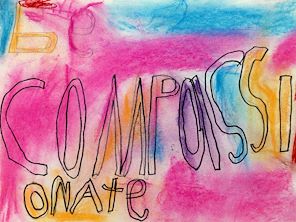 be
COMPASSI
ONATe